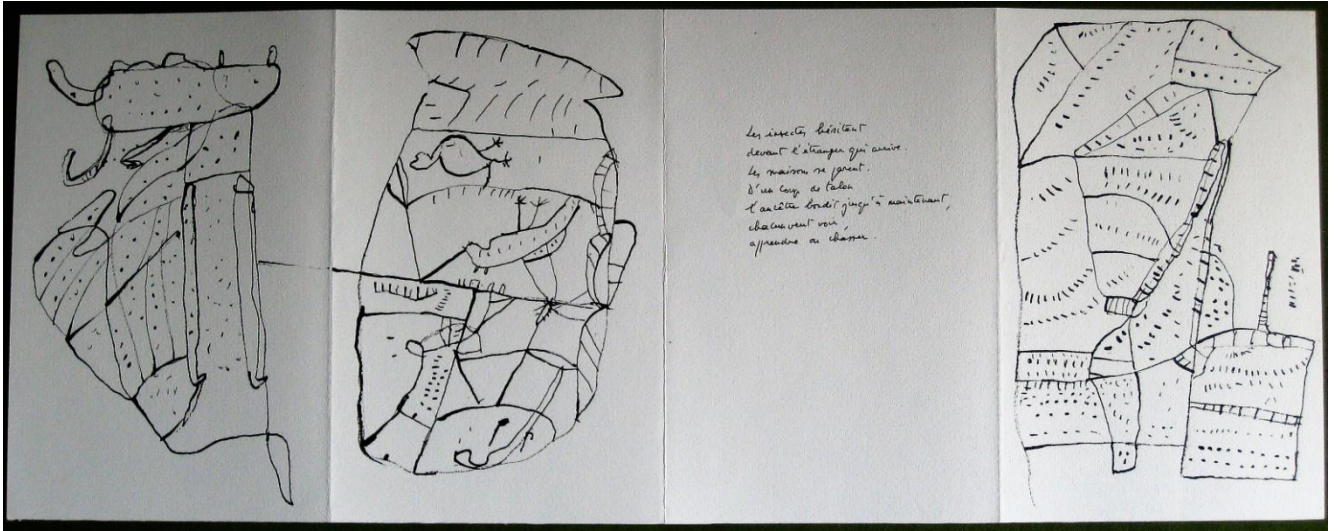 Les insectes hésitent
devant l'étranger qui arrive.
Les maisons se parent.
D'un coup de talon
l'ancêtre bondit jusqu'à maintenant,
chacun vient voir
apprendre ou chasser.